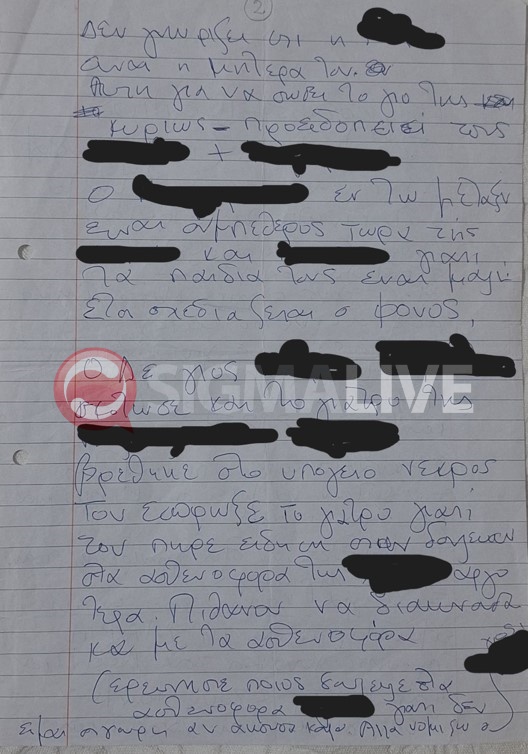 2
Δεν γνωριζει οτι η
ειναι η μητερα του.
Αυτη για να σωσει το γιο της
κυριως - προειδοποιει τους
+
Ο εν τω μεταξυ
ειναι συμπεθερος τωρα της
και γιατι
τα παιδια τους ειναι μαζι
Ετσι σχεδιαζεται ο φονος,
Ο δε γιος
SIGMALIVE
σκοτωσε και το γιατρο της
βρεθηκε στο υπογειο νεκρος
Τον εσπρωξε το γιατρο γιατι
τον πηρε ειδηση οταν δουλευαν
στα ασθενοφορα της αργο
τερα. Πιθανον να διακινουσε
και με τα ασθενοφορα
(ερευνησε ποιος δουλευε στα
ασθενοφορα γιατι δεν
ειμαι σιγουρη αν ακουσα καλα. Αλλα νομιζω ο